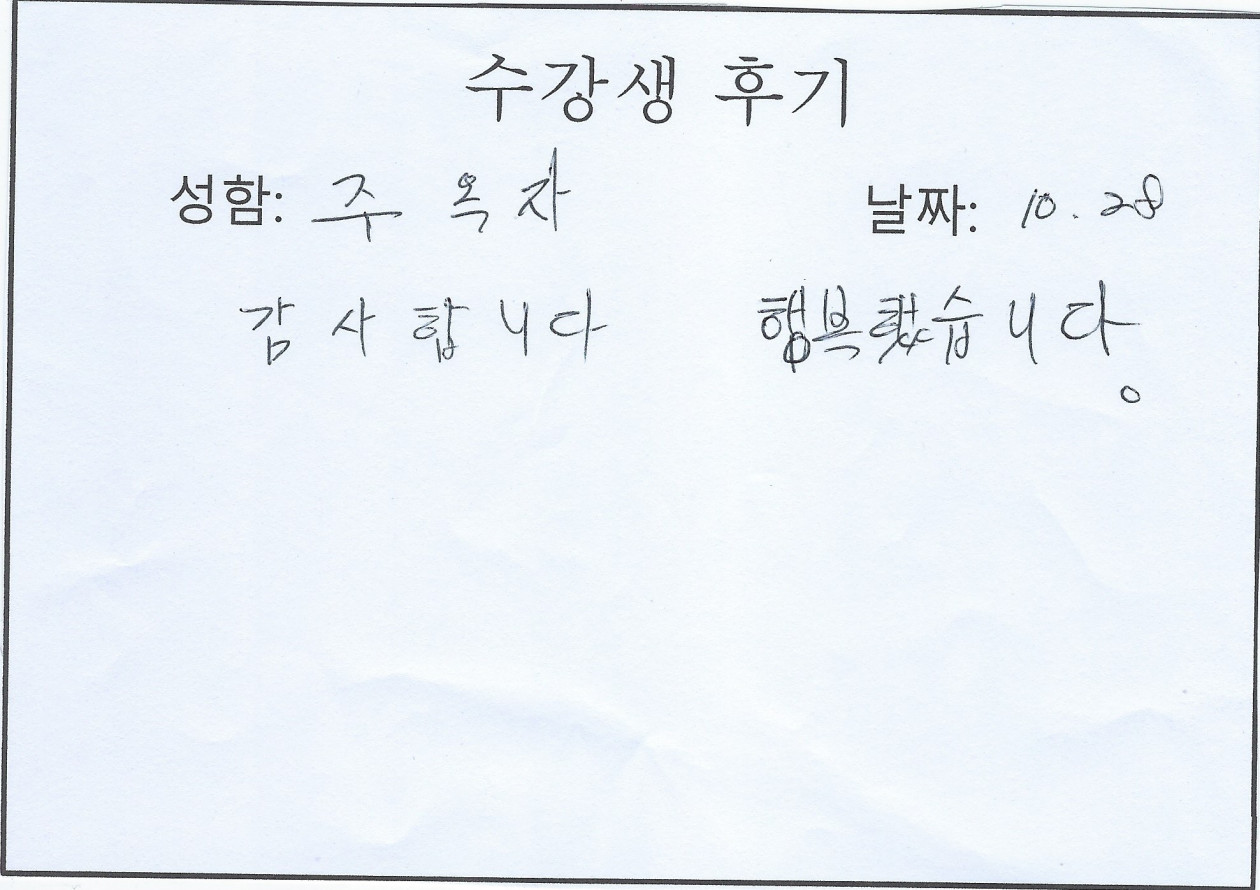 수강생 후기
성함: 주옥자 날짜: 10.28
감사합니다 행복했습니다.